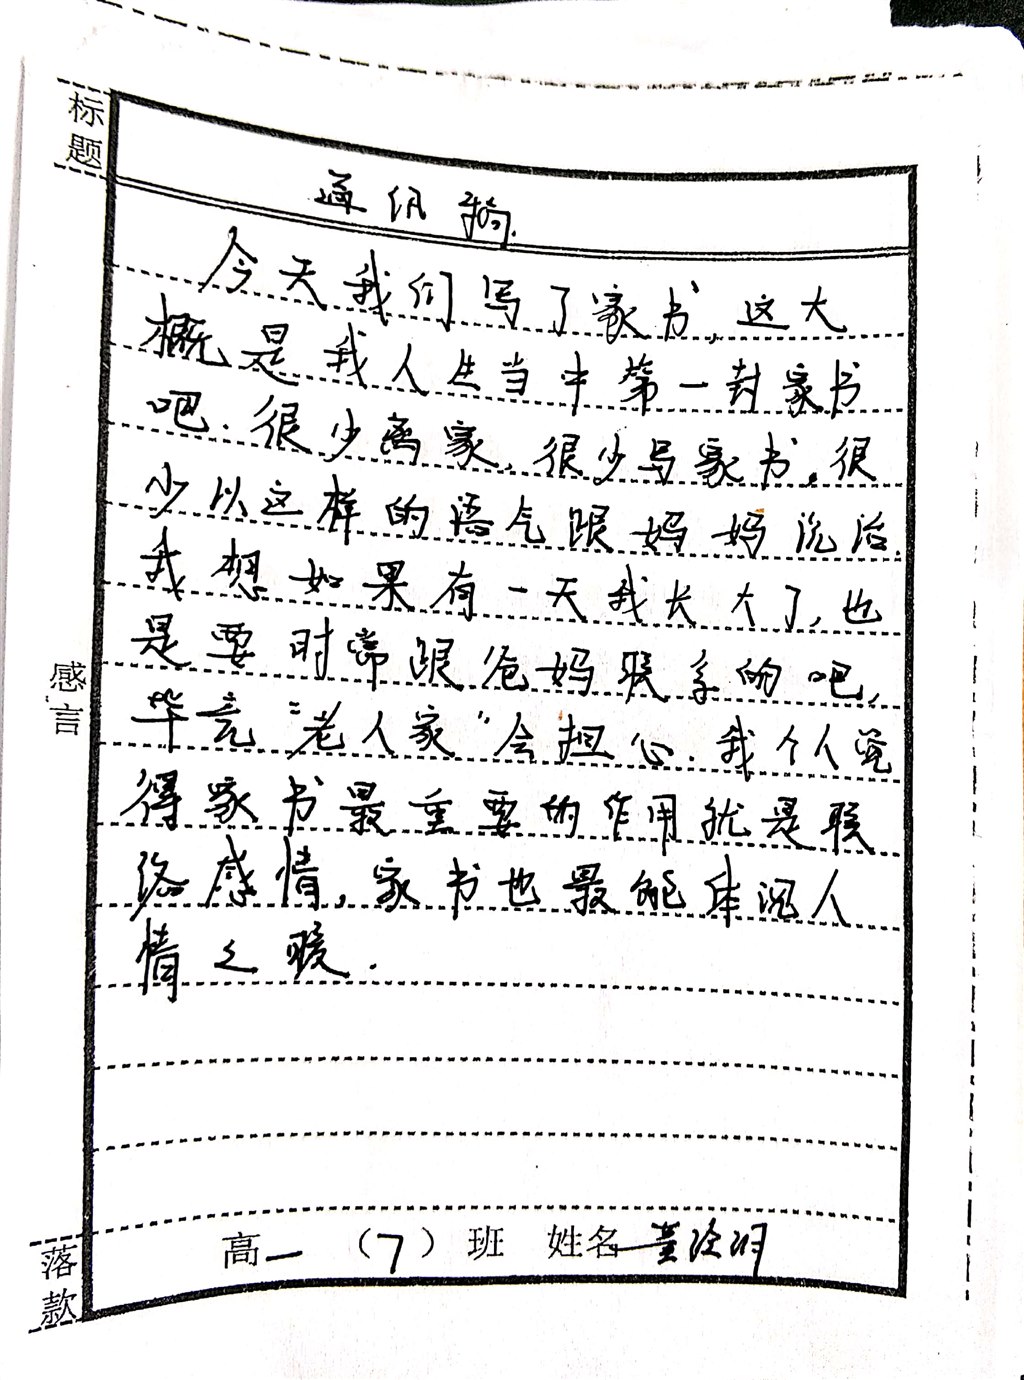 标题
通讯稿.
今天我们写了家书,这大
概是我人生当中第一封家书
吧.很少离家,很少写家书,很
少以这样的语气跟妈妈说话.
我想如果有一天我长大了,也
是要时常跟爸妈联系的吧,
毕竟"老人家"会担心.我个人觉
得家书最重要的作用就是联
络感情,家书也最能体现人
情之暖.
感言
落款
高一 (7) 班 姓名 董